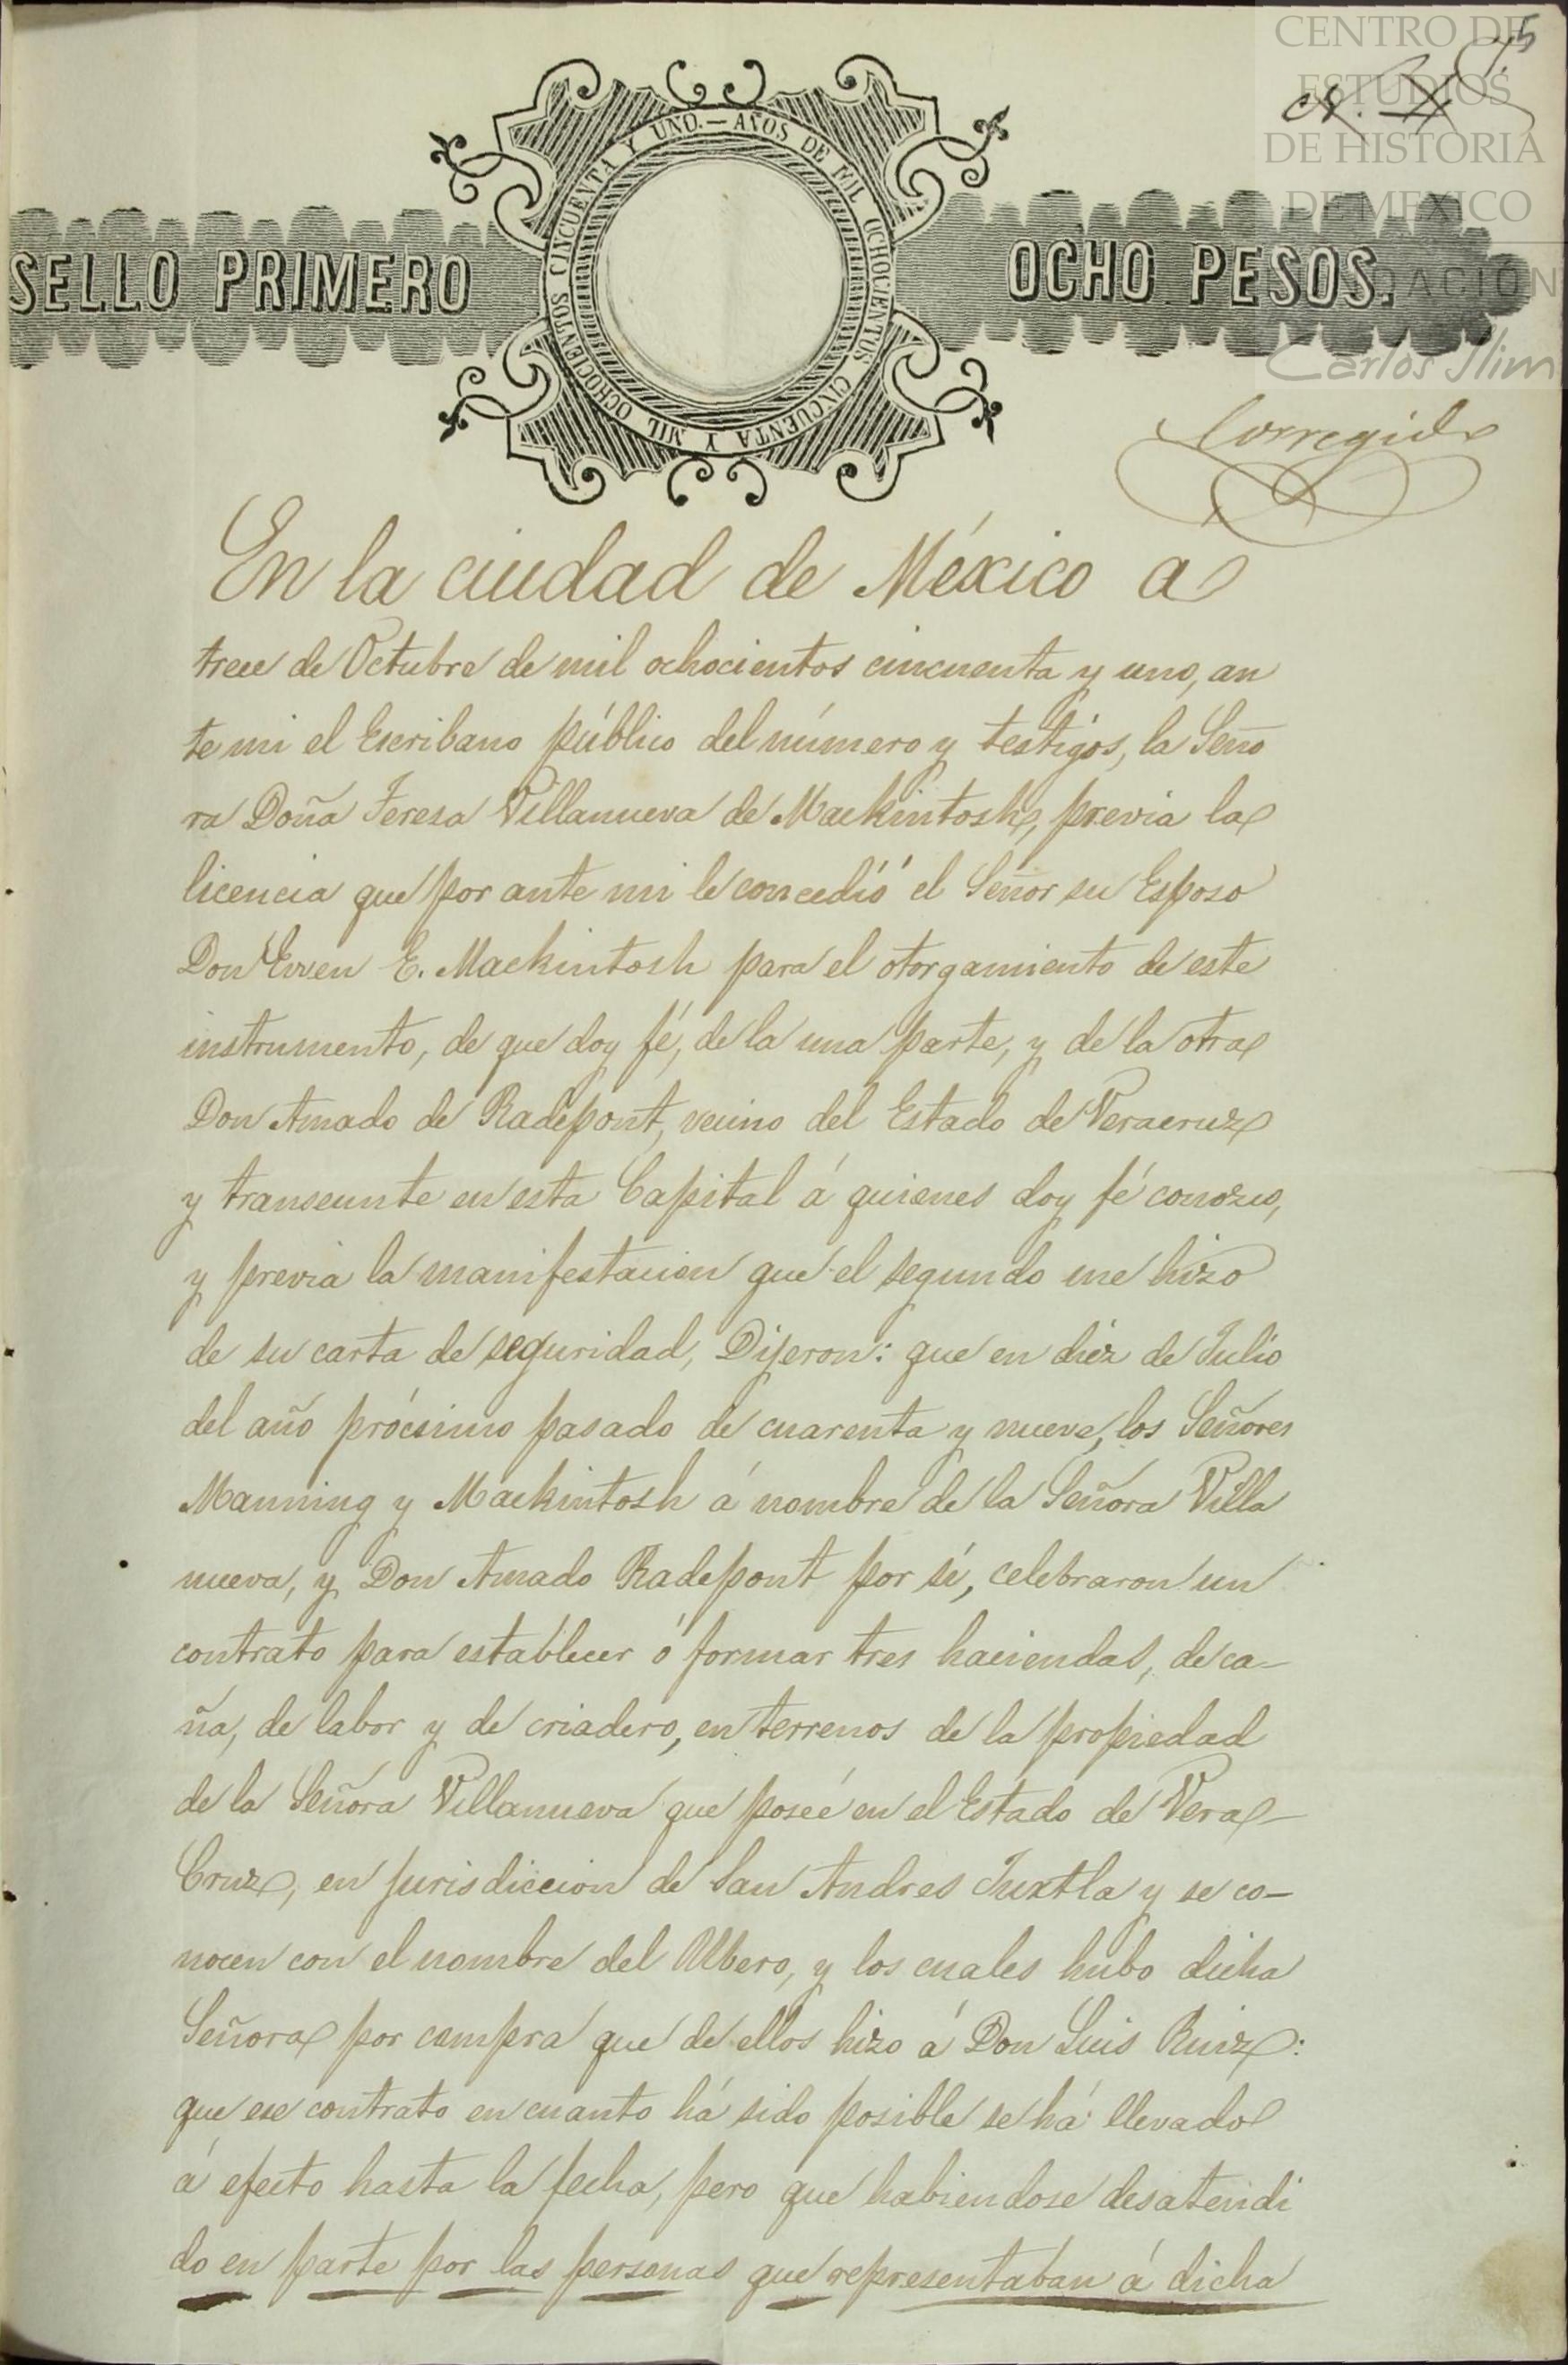 CENTRO DE
ESTUDIOS
DE HISTORIA
DE MEXICO
FUNDACIÓN
Carlos Slim
SELLO PRIMERO
OCHO PESOS.
AÑOS DE MIL OCHOCIENTOS CINCUENTA Y MIL OCHOCIENTOS CINCUENTA Y UNO.
Corregido
En la ciudad de México a
trece de Octubre de mil ochocientos cincuenta y uno, an
te mi el Escribano público del número y testigos, la Seño
ra Doña Teresa Villanueva de Mackintosh, previa la
licencia que por ante mi le concedió el Señor su Esposo
Don Ewen E. Mackintosh para el otorgamiento de este
instrumento, de que doy fé, de la una parte, y de la otra
Don Amado de Radepont, vecino del Estado de Veracruz
y transeunte en esta Capital á quienes doy fé conozco,
y previa la manifestacion que el segundo me hizo
de su carta de seguridad, Dijeron: que en diez de Julio
del año prócsimo pasado de cuarenta y nueve, los Señores
Manning y Mackintosh á nombre de la Señora Villa
nueva, y Don Amado Radepont por sí, celebraron un
contrato para establecer ó formar tres haciendas, de ca-
ña, de labor y de criadero, en terrenos de la propiedad
de la Señora Villanueva que poseé en el Estado de Vera-
Cruz, en jurisdiccion de San Andres Tuxtla y se co-
nocen con el nombre del Obero, y los cuales hubo dicha
Señora por compra que de ellos hizo á Don Luis Ruiz:
que ese contrato en cuanto há sido posible se há llevado
á efecto hasta la fecha, pero que habiendose desatendi
do en parte por las personas que representaban á dicha